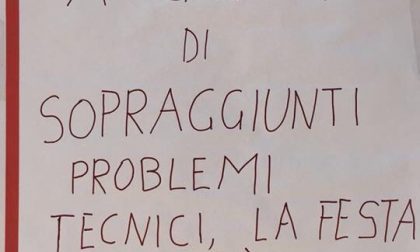 DI
SOPRAGGIUNTI
PROBLEMI
TECNICI, LA FESTA